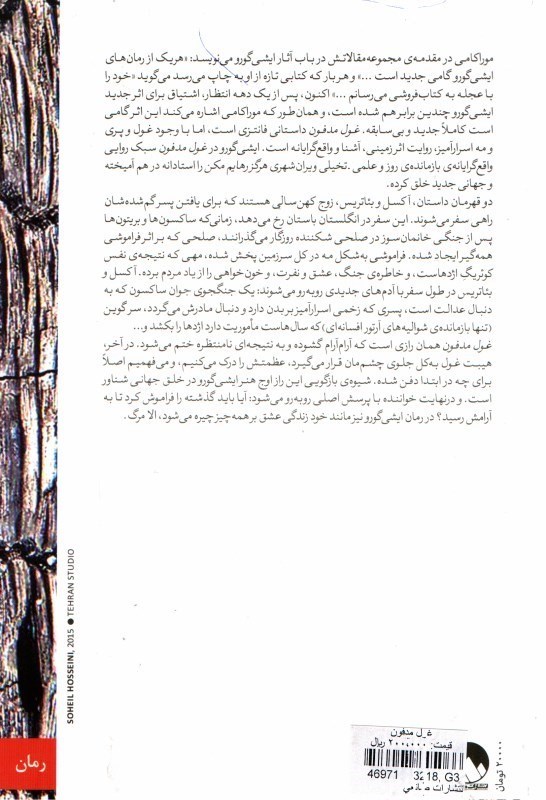 موراکامی در مقدمه‌ی مجموعه مقالاتش در باب آثار ایشی‌گورو می‌نویسد: «هریک از رمان‌های
ایشی‌گورو گامی جدید است ...» و هربار که کتابی تازه از او به چاپ می‌رسد می‌گوید «خود را
با عجله به کتاب‌فروشی می‌رسانم ...» اکنون، پس از یک دهه انتظار، اشتیاق برای اثر جدید
ایشی‌گورو چندین برابر هم شده است، و همان‌طور که موراکامی اشاره می‌کند این اثر گامی
است کاملاً جدید و بی‌سابقه. غول مدفون داستانی فانتزی است، اما با وجود غول و پری
و مه اسرارآمیز، روایت اثر زمینی، آشنا و واقع‌گرایانه است. ایشی‌گورو در غول مدفون سبک روایی
واقع‌گرایانه‌ی بازمانده‌ی روز و علمی ـ تخیلی ویران‌شهری هرگز رهایم مکن را استادانه در هم آمیخته
و جهانی جدید خلق کرده.
دو قهرمان داستان، آکسل و بئاتریس، زوج کهن‌سالی هستند که برای یافتن پسر گم‌شده‌شان
راهی سفر می‌شوند. این سفر در انگلستان باستان رخ می‌دهد، زمانی‌که ساکسون‌ها و بریتون‌ها
پس از جنگی خانمان‌سوز در صلحی شکننده روزگار می‌گذرانند، صلحی که بر اثر فراموشی
همه‌گیر ایجاد شده. فراموشی به‌شکل مه در کل سرزمین پخش شده، مهی که نتیجه‌ی نفس
کوئریگ اژدهاست، و خاطره‌ی جنگ، عشق و نفرت، و خون‌خواهی را از یاد مردم برده. آکسل و
بئاتریس در طول سفر با آدم‌های جدیدی روبه‌رو می‌شوند: یک جنگجوی جوان ساکسون که به
دنبال عدالت است، پسری که زخمی اسرارآمیز بر بدن دارد و دنبال مادرش می‌گردد، سر گوین
(تنها بازمانده‌ی شوالیه‌های آرتور افسانه‌ای) که سال‌هاست مأموریت دارد اژدها را بکشد و...
غول مدفون همان رازی است که آرام‌آرام گشوده و به نتیجه‌ای نامنتظره ختم می‌شود. در آخر،
هیبت غول به‌کل جلوی چشم‌مان قرار می‌گیرد، عظمتش را درک می‌کنیم، و می‌فهمیم اصلاً
برای چه در ابتدا دفن شده. شیوه‌ی بازگویی این راز اوج هنر ایشی‌گورو در خلق جهانی شناور
است. و درنهایت خواننده با پرسش اصلی روبه‌رو می‌شود: آیا باید گذشته را فراموش کرد تا به
آرامش رسید؟ در رمان ایشی‌گورو نیز مانند خود زندگی عشق بر همه‌چیز چیره می‌شود، الا مرگ.
SOHEIL HOSSEINI, 2015 ● TEHRAN STUDIO
رمان
غول مدفون
قیمت: ۲۰۰,۰۰۰ ریال
46971 3218, G3
۲۰۰۰۰ تومان